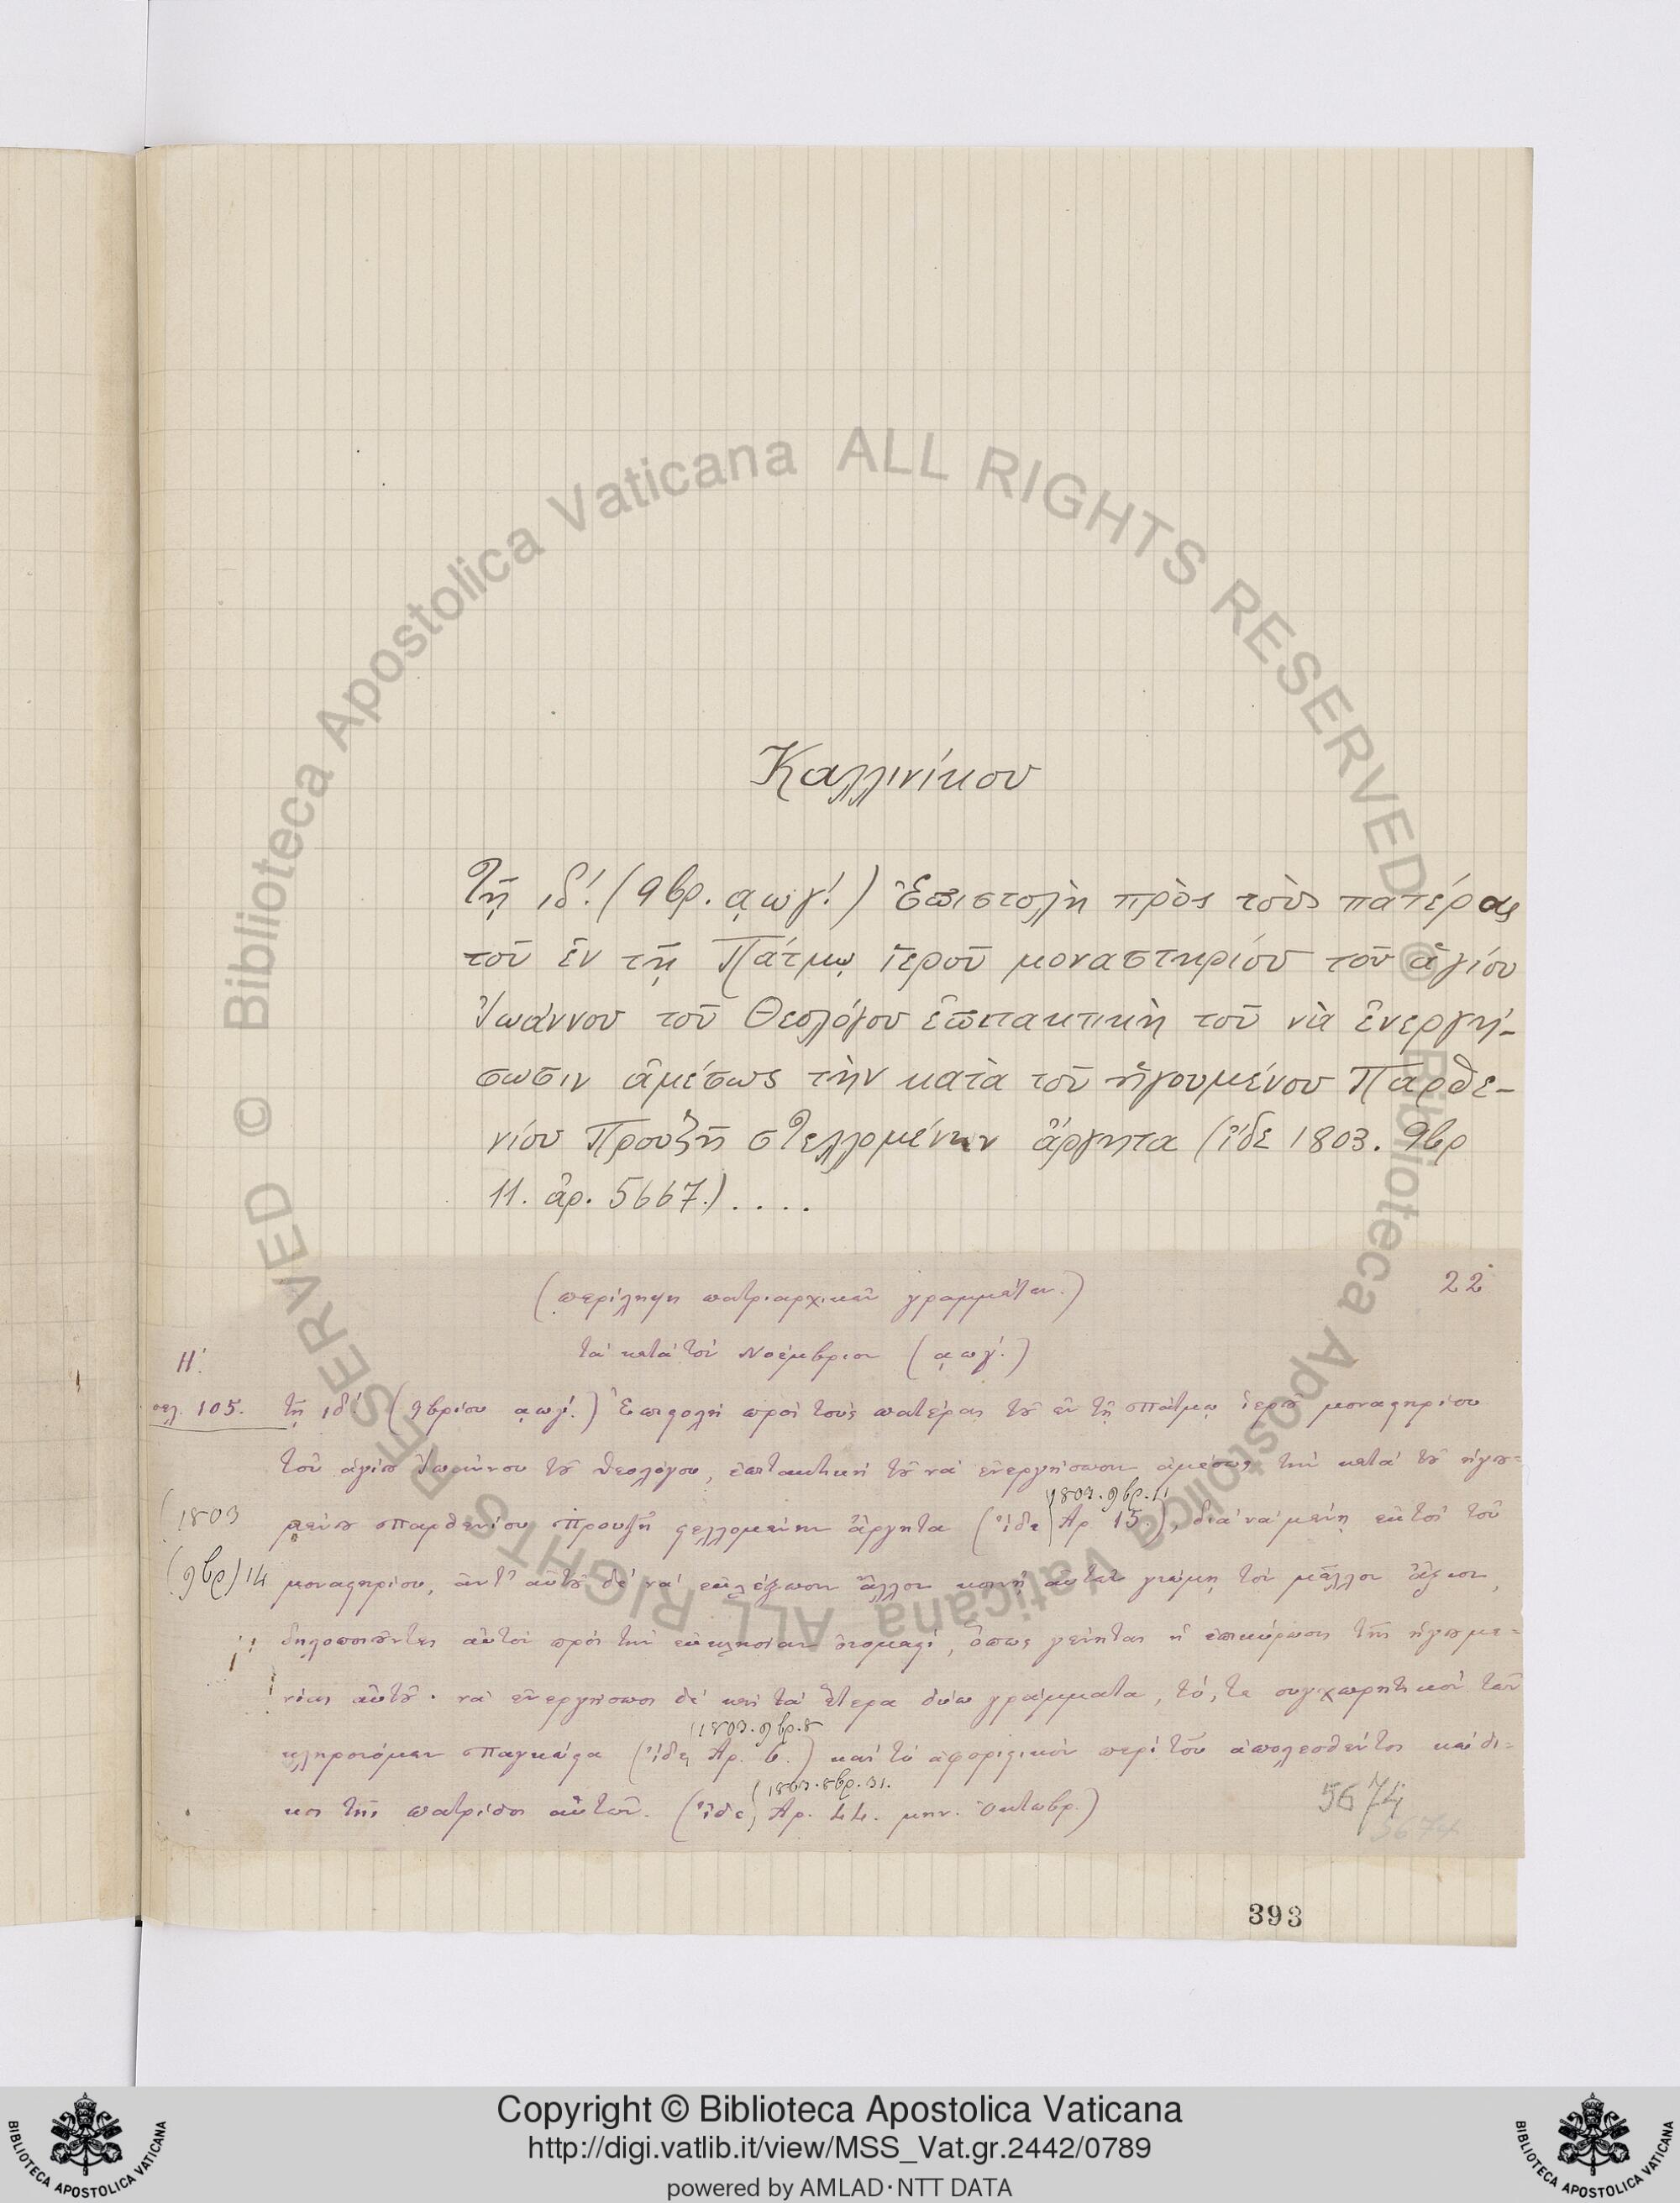 Καλλινίκου
Τῇ ιδ΄. (9βρ. ͵αωγ΄.) Ἐπιστολὴ πρὸς τοὺς πατέρας
τοῦ ἐν τῇ Πάτμῳ ἱεροῦ μοναστηρίου τοῦ ἁγίου
Ἰωάννου τοῦ Θεολόγου ἐπιτακτικὴ τοῦ νὰ ἐνεργή-
σωσιν ἀμέσως τὴν κατὰ τοῦ ἡγουμένου Παρθε-
νίου Προυζῆ στελλομένην ἄργητα (ἴδε 1803. 9βρ
11. ἀρ. 5667.) ....
(περίληψη πατριαρχικῶν γραμμάτων.)
22
τὰ κατὰ τὸν Νοέμβριον (͵αωγ΄.)
Η΄.
σελ. 105. τῇ ιδ΄. (9βρίου ͵αωγ΄.) Ἐπιστολὴ πρὸς τοὺς πατέρας τοῦ ἐν τῇ Πάτμῳ ἱεροῦ μοναστηρίου
τοῦ ἁγίου Ἰωάννου τοῦ Θεολόγου, ἐπιτακτικὴ τοῦ νὰ ἐνεργήσωσιν ἀμέσως τὴν κατὰ τοῦ ἡγου=
(1803. 9βρ. 11
(1803 μένου Παρθενίου Προυζῆ στελλομένην ἄργητα (ἴδε Ἀρ. 15.), διὰ νὰ μένῃ ἐκτὸς τοῦ
(9βρ) 14 μοναστηρίου, ἀντ' αὐτοῦ δὲ νὰ ἐκλέξωσιν ἄλλον κοινῇ αὐτῶν γνώμῃ τὸν μᾶλλον ἄξιον,
δηλοποιοῦντες αὐτὸν πρὸς τὴν ἐκκλησίαν ὀνομαστί, ὅπως γένηται ἡ ἐπικύρωσις τῆς ἡγουμε=
νίας αὐτοῦ· νὰ ἐνεργήσωσι δὲ καὶ τὰ ἕτερα δύω γράμματα, τό, τε συγχωρητικὸν τῶν
(1803. 9βρ. 8
κληρονόμων Παγκώστα (ἴδε Ἀρ. 6.) καὶ τὸ ἀφοριστικὸν περὶ τοῦ ἀπολεσθέντος κώδι=
(1803. 8βρ. 31.
κος τῆς πατρίδος αὐτῶν. (ἴδε, Ἀρ. 44. μην. Ὀκτωβρ.)
5674
5674
393
© Biblioteca Apostolica Vaticana ALL RIGHTS RESERVED
© Biblioteca Apostolica Vaticana ALL RIGHTS RESERVED
Copyright © Biblioteca Apostolica Vaticana
http://digi.vatlib.it/view/MSS_Vat.gr.2442/0789
powered by AMLAD·NTT DATA
BIBLIOTECA APOSTOLICA VATICANA
BIBLIOTECA APOSTOLICA VATICANA